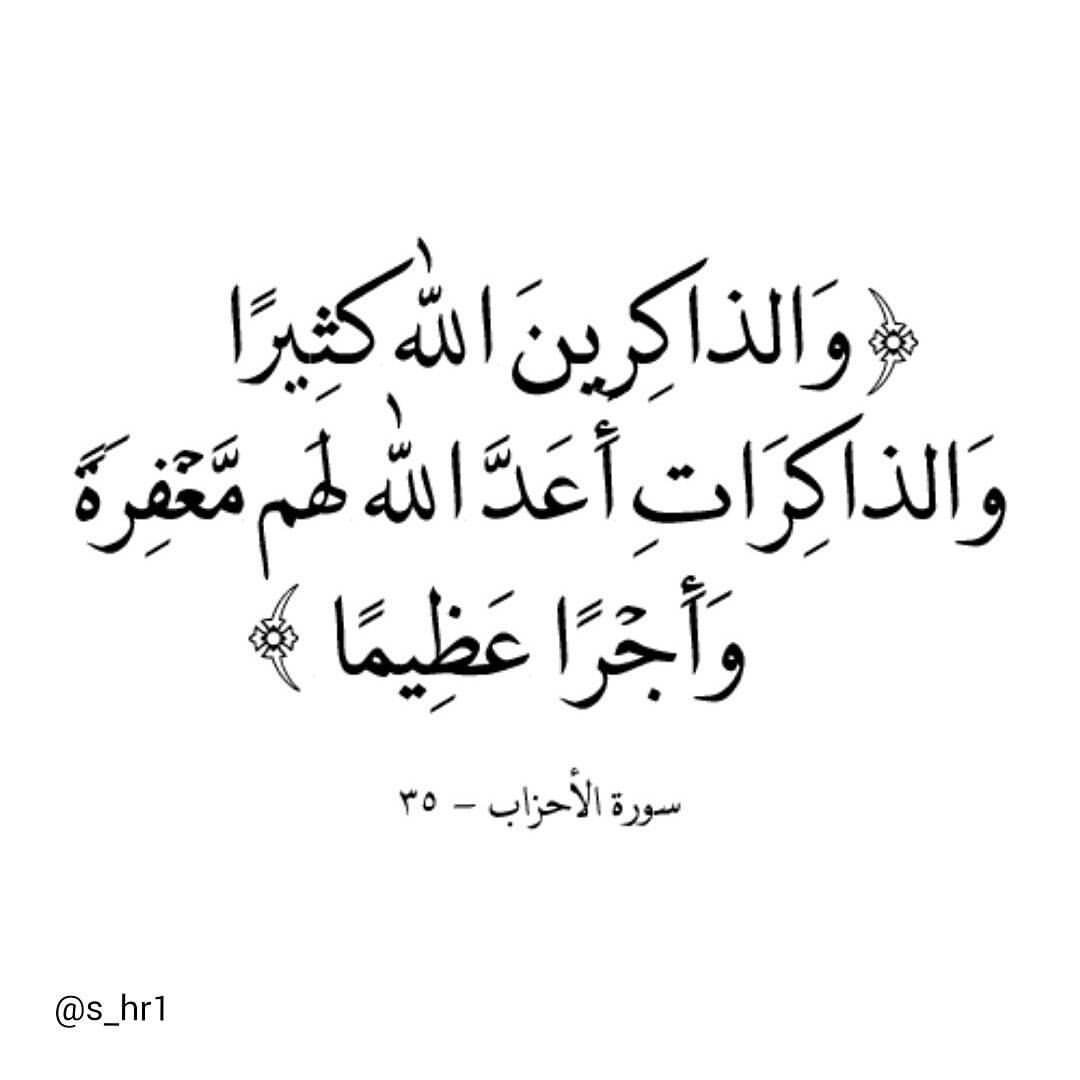 ﴿ وَالذاكِرِينَ اللّٰه كَثِيرًا
وَالذاكِرَاتِ أَعَدَّ اللّٰه لَهم مَّغۡفِرَةً
وَأَجۡرًا عَظِيمًا ﴾
سورة الأحزاب – ٣٥
@s_hr1